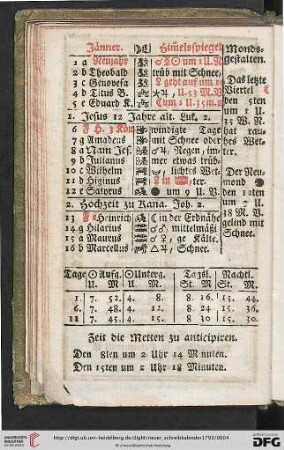 Jänner. Himelsspiegel Monds-
gestalten.
1 a Neujahr ☌♂☉ um 1 U. N.
2 b Theobald trüb mit Schnee,
3 c Genovefa geht auf um
4 d Titus B.
5 e Eduard K.
Das letzte
Viertel
den 5ten
um 1 U.
35 W. N.
hat rau-
hes Wet-
ter.
1. Jesus 12 Jahre alt. Luk. 2.
6 F H. 3 Kön windigte Tage
7 g Amadeus mit Schnee oder
8 a Nam Jes Regen, im-
9 b Julianus mer etwas trüb-
10 c Wilhelm lichtes Wet-
11 d Higinus ter.
12 e Satyrus um 9 U. V.
Der Neu-
mond
den 12ten
um 9 U.
38 M. V.
gelind mit
Schnee.
2. Hochzeit zu Kana. Joh. 2.
13 F Heinrich in der Erdnähe
14 g Hilarius mittelmäßi
15 a Maurus ge Kälte.
16 b Marcellus Schnee.
Tage ☉ Aufg. ☉ Unterg. Tagsl. Nachtl.
U. M. U. M. St. M. St. M.
1. 7. 52. 4. 8. 8 16. 15. 44.
6. 7. 48. 4. 12. 8 24. 15. 36.
11 7. 45. 4. 15. 8 30. 15. 30.
Zeit die Metten zu anticipiren.
Den 8ten um 2 Uhr 14 Minuten.
Den 15ten um 2 Uhr 18 Minuten.
http://digi.ub.uni-heidelberg.de/diglit/neuer_schreibkalender1793/0004
UNIVERSITÄTS-
BIBLIOTHEK
HEIDELBERG
© Universitätsbibliothek Heidelberg
DFG